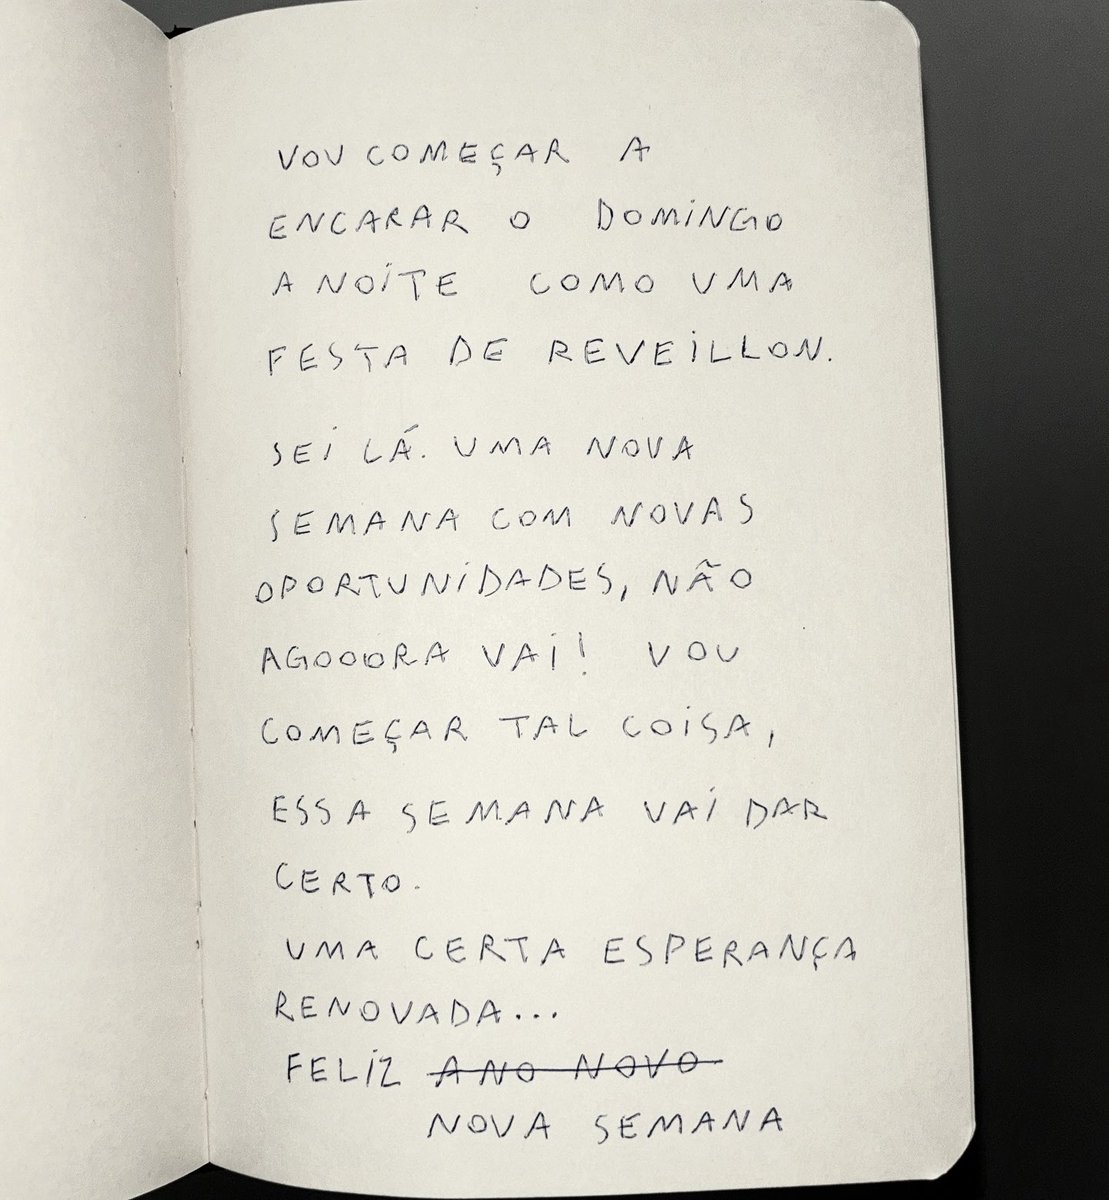 VOU COMEÇAR A
ENCARAR O DOMINGO
A NOITE COMO UMA
FESTA DE REVEILLON.
SEI LÁ. UMA NOVA
SEMANA COM NOVAS
OPORTUNIDADES, NÃO
AGOOORA VAI! VOU
COMEÇAR TAL COISA,
ESSA SEMANA VAI DAR
CERTO.
UMA CERTA ESPERANÇA
RENOVADA...
FELIZ ANO NOVO
NOVA SEMANA